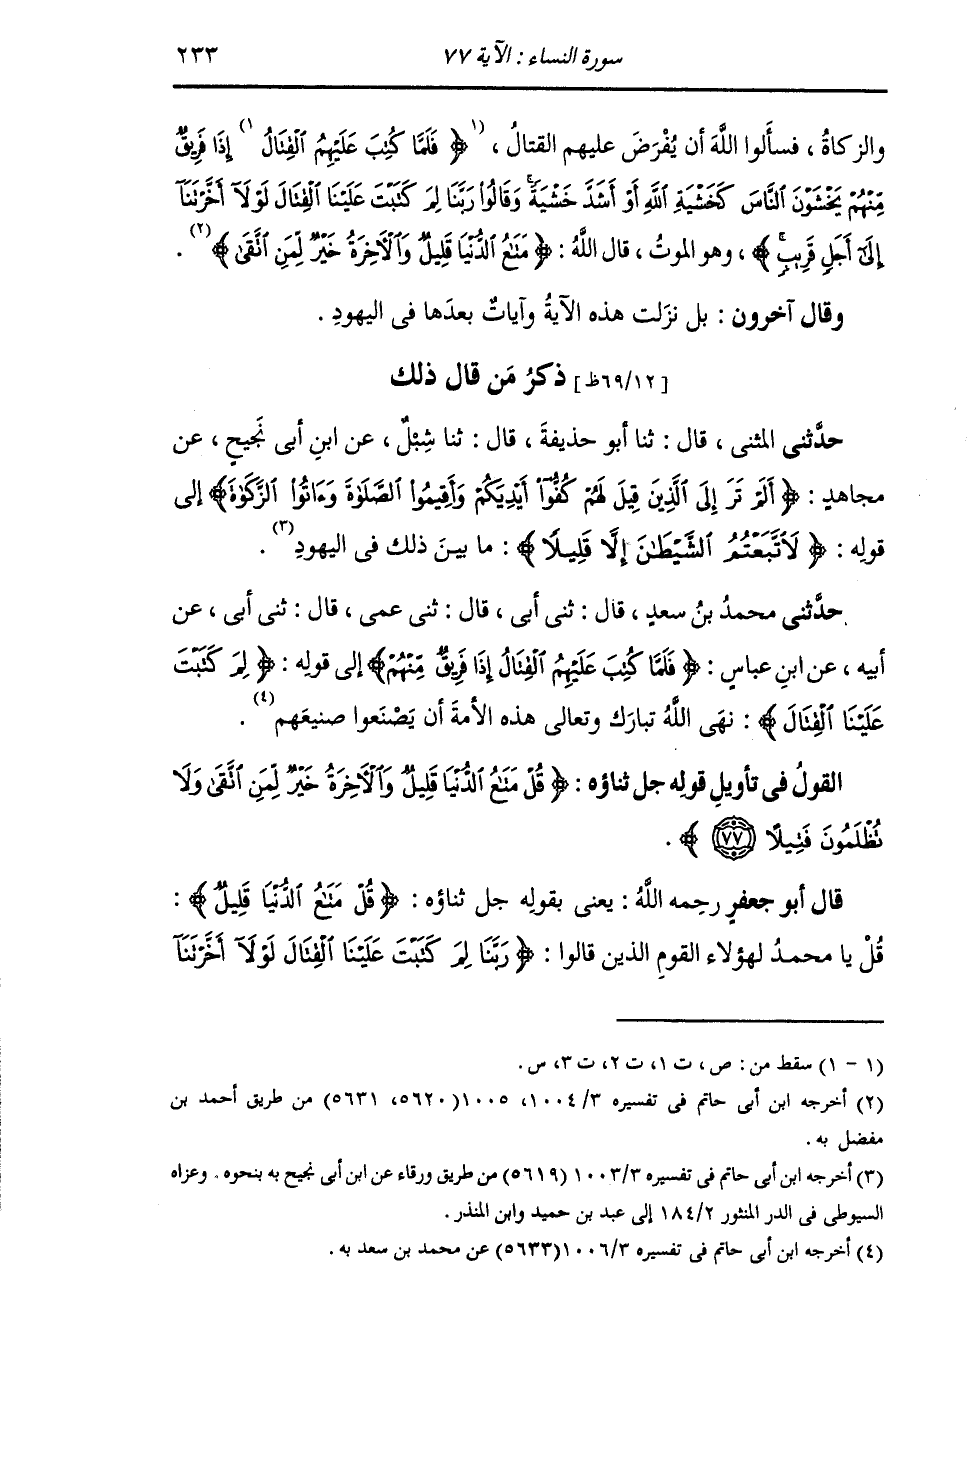 سورة النساء : الآية ٧٧ ٢٣٣
والزكاةُ ، فسألوا اللَّهَ أن يُفْرَضَ عليهم القتالُ ، (١ ﴿ فَلَمَّا كُتِبَ عَلَيْهِمُ ٱلْقِتَالُ ١) إِذَا فَرِيقٌ
مِّنْهُمْ يَخْشَوْنَ ٱلنَّاسَ كَخَشْيَةِ ٱللَّهِ أَوْ أَشَدَّ خَشْيَةً ۚ وَقَالُوا۟ رَبَّنَا لِمَ كَتَبْتَ عَلَيْنَا ٱلْقِتَالَ لَوْلَآ أَخَّرْتَنَآ
إِلَىٰٓ أَجَلٍ قَرِيبٍ ۗ ﴾ ، وهو الموتُ ، قال اللَّهُ : ﴿ مَتَـٰعُ ٱلدُّنْيَا قَلِيلٌ وَٱلْـَٔاخِرَةُ خَيْرٌ لِّمَنِ ٱتَّقَىٰ ﴾(٢) .
وقال آخرون : بل نزَلت هذه الآيةُ وآياتٌ بعدَها فى اليهودِ .
[١٢/٦٩ظ] ذكرُ مَن قال ذلك
حدَّثنى المثنى ، قال : ثنا أبو حذيفةَ ، قال : ثنا شِبْلٌ ، عن ابنِ أبى نَجيحٍ ، عن
مجاهدٍ : ﴿ أَلَمْ تَرَ إِلَى ٱلَّذِينَ قِيلَ لَهُمْ كُفُّوٓا۟ أَيْدِيَكُمْ وَأَقِيمُوا۟ ٱلصَّلَوٰةَ وَءَاتُوا۟ ٱلزَّكَوٰةَ﴾ إلى
قولِه : ﴿ لَٱتَّبَعْتُمُ ٱلشَّيْطَـٰنَ إِلَّا قَلِيلًا ﴾ : ما بينَ ذلك فى اليهودِ(٣) .
حدَّثنى محمدُ بنُ سعدٍ ، قال : ثنى أبى ، قال : ثنى عمى ، قال : ثنى أبى ، عن
أبيه ، عن ابنِ عباسٍ : ﴿ فَلَمَّا كُتِبَ عَلَيْهِمُ ٱلْقِتَالُ إِذَا فَرِيقٌ مِّنْهُمْ﴾ إلى قولِه : ﴿ لِمَ كَتَبْتَ
عَلَيْنَا ٱلْقِتَالَ ﴾ : نهَى اللَّهُ تبارَك وتعالى هذه الأمةَ أن يَصْنَعوا صنيعَهم(٤) .
القولُ فى تأويلِ قولِه جل ثناؤه : ﴿ قُلْ مَتَـٰعُ ٱلدُّنْيَا قَلِيلٌ وَٱلْـَٔاخِرَةُ خَيْرٌ لِّمَنِ ٱتَّقَىٰ وَلَا
تُظْلَمُونَ فَتِيلًا ٧٧ ﴾ .
قال أبو جعفرٍ رحِمه اللَّهُ : يعنى بقولِه جل ثناؤه : ﴿ قُلْ مَتَـٰعُ ٱلدُّنْيَا قَلِيلٌ ﴾ :
قُلْ يا محمدُ لهؤلاء القومِ الذين قالوا : ﴿ رَبَّنَا لِمَ كَتَبْتَ عَلَيْنَا ٱلْقِتَالَ لَوْلَآ أَخَّرْتَنَآ
(١ - ١) سقط من : ص ، ت ١، ت ٢، ت ٣، س .
(٢) أخرجه ابن أبى حاتم فى تفسيره ١٠٠٤/٣، ١٠٠٥(٥٦٢٠، ٥٦٣١) من طريق أحمد بن
مفضل به .
(٣) أخرجه ابن أبى حاتم فى تفسيره ١٠٠٣/٣ (٥٦١٩) من طريق ورقاء عن ابن أبى نجيح به بنحوه . وعزاه
السيوطى فى الدر المنثور ١٨٤/٢ إلى عبد بن حميد وابن المنذر .
(٤) أخرجه ابن أبى حاتم فى تفسيره ١٠٠٦/٣(٥٦٣٣) عن محمد بن سعد به .